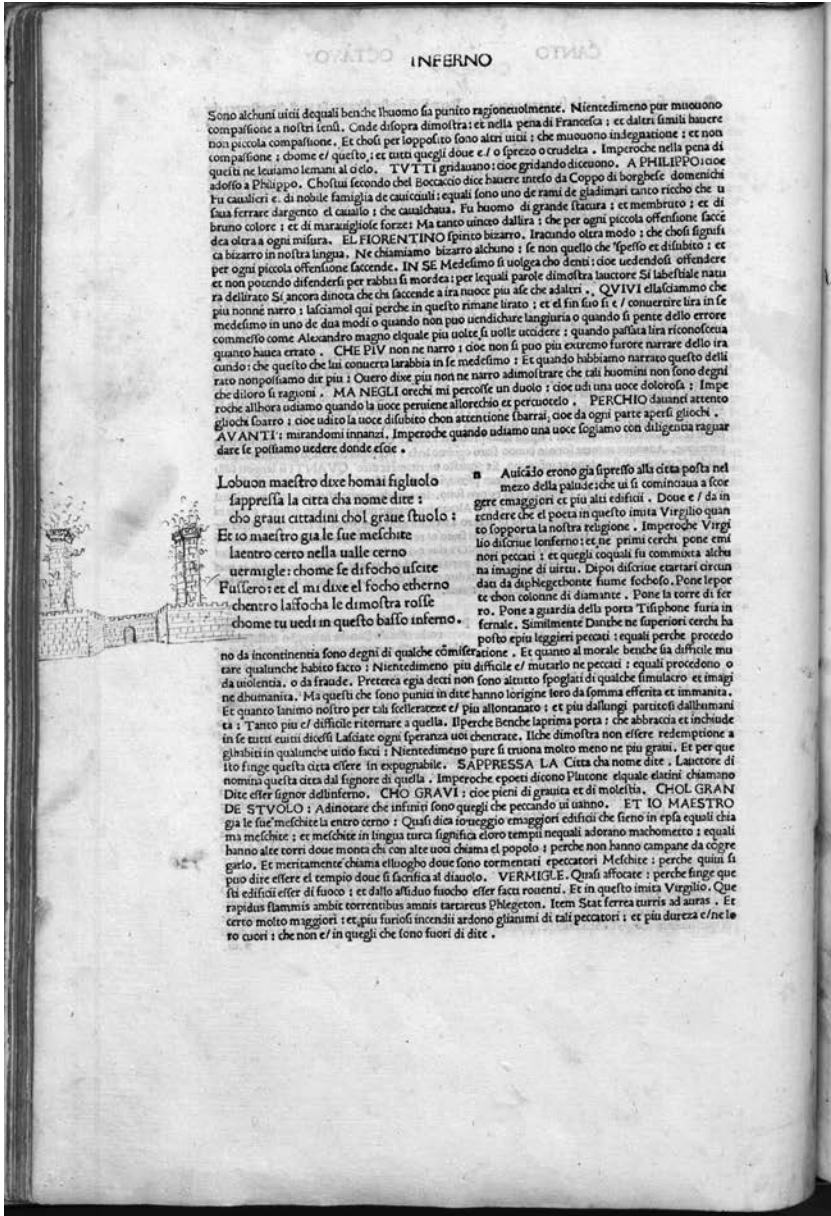 INFERNO
Sono alchuni uitii dequali benche lhuomo ſia punito ragioneuolmente. Nientedimeno pur muouono
compaſſione a noſtri ſenſi. Onde diſopra dimoſtra: et nella pena di Franceſca; et daltri ſimili hauere
non piccola compaſſione. Et choſi per loppoſito ſono altri uitii; che muouono indegnatione: et non
compaſſione; chome e/ queſto,: et tutti quegli doue e/ o ſprezo o crudelta. Imperoche nella pena di
queſti ne leuiamo lemani al cielo. TVTTI gridauano: cioe gridando diceuono. A PHILIPPO: cioe
adoſſo a Philippo. Choſtui ſecondo chel Boccaccio dice hauere inteſo da Coppo di borgheſe domenichi
Fu caualieri e. di nobile famiglia de cauicciuli: equali ſono uno de rami de gladimari tanto riccho che u
ſaua ferrare dargento el cauallo: che caualchaua. Fu huomo di grande ſtatura: et membruto; et di
bruno colore; et di marauiglioſe forze: Ma tanto uincto dallira; che per ogni piccola offenſione ſacce
dea oltra a ogni miſura. EL FIORENTINO ſpirito bizarro. Iracundo oltra modo: che choſi ſignifi
ca bizarro in noſtra lingua. Ne chiamiamo bizarro alchuno; ſe non quello che ſpeſſo et diſubito; et
per ogni piccola offenſione ſaccende. IN SE Medeſimo ſi uolgea cho denti: cioe uedendoſi offendere
et non potendo difenderſi per rabbia ſi mordea: per lequali parole dimoſtra lauctore Si labeſtiale natu
ra dellirato Si ancora dinota che chi ſaccende a ira nuoce piu aſe che adaltri. QVIVI ellaſciammo che
piu nonne narro: laſciamol qui perche in queſto rimane lirato; et el fin ſuo ſi e/ conuertire lira in ſe
medeſimo in uno de dua modi o quando non puo uendichare langiuria o quando ſi pente dello errore
commeſſo come Alexandro magno elquale piu uolte ſi uolle uccidere: quando paſſata lira riconoſceua
quanto hauea errato. CHE PIV non ne narro: cioe non ſi puo piu extremo furore narrare dello ira
cundo: che queſto che lui conuerta larabbia in ſe medeſimo: Et quando habbiamo narrato queſto delli
rato nonpoſſiamo dir piu: Ouero dixe piu non ne narro adimoſtrare che tali huomini non ſono degni
che diloro ſi ragioni. MA NEGLI orechi mi percoſſe un duolo: cioe udi una uoce doloroſa: Impe
roche allhora udiamo quando la uoce peruiene allorechio et percuotelo. PERCHIO dauanti attento
gliochi ſbarro: cioe udito la uoce diſubito chon attentione ſbarrai, cioe da ogni parte aperſi gliochi.
AVANTI: mirandomi innanzi. Imperoche quando udiamo una uoce ſogliamo con diligentia raguar
dare ſe poſſiamo uedere donde eſcie.
Lobuon maeſtro dixe homai figluolo
ſappreſſa la citta cha nome dite:
cho graui cittadini chol graue ſtuolo:
Et io maeſtro gia le ſue meſchite
laentro certo nella ualle cerno
uermigle: chome ſe di focho uſcite
Fuſſero: et el mi dixe el focho etherno
chentro laffocha le dimoſtra roſſe
chome tu uedi in queſto baſſo inferno.
erono gia ſipreſſo alla citta poſta nel
mezo della palude; che ui ſi cominciaua a ſcor
gere emaggiori et piu alti edificii. Doue e/ da in
tendere che el poeta in queſto imita Virgilio quan
to ſopporta la noſtra religione. Imperoche Virgi
lio diſcriue lonferno: et ne primi cerchi pone emi
nori peccati; et quegli coquali fu commixta alchu
na imagine di uirtu. Dipoi diſcriue etartari circun
dati da diphlegethonte fiume fochoſo. Pone lepor
te chon colonne di diamante. Pone la torre di fer
ro. Pone a guardia della porta Tiſiphone furia in
fernale. Similmente Danthe ne ſuperiori cerchi ha
poſto epiu leggieri peccati: equali perche procedo
no da incontinentia ſono degni di qualche cõmiſeratione. Et quanto al morale benche ſia difficile mu
tare qualunche habito facto: Nientedimeno piu difficile e/ mutarlo ne peccati: equali procedono o
da uiolentia. o da fraude. Preterea egia decti non ſono altutto ſpogliati di qualche ſimulacro et imagi
ne dhumanita. Ma queſti che ſono puniti in dite hanno lorigine loro da ſomma efferita et immanita.
Et quanto lanimo noſtro per tali ſcelerateze e/ piu allontanato: et piu daſlungi partitoſi dallhumani
ta: Tanto piu e/ difficile ritornare a quella. Ilperche Benche laprima porta: che abbraccia et inchiude
in ſe tutti euitii diceſſi Laſciate ogni ſperanza uoi chentrate. Ilche dimoſtra non eſſere redemptione a
glihabiti in qualunche uitio facti: Nientedimeno pure ſi truona molto meno ne piu graui. Et per que
ſto finge queſta citta eſſere in expugnabile. SAPPRESSA LA Citta cha nome dite. Lauctore di
nomina queſta citta dal ſignore di quella. Imperoche epoeti dicono Plutone elquale elatini chiamano
Dite eſſer ſignor dellinferno. CHO GRAVI: cioe pieni di grauita et di moleſtia. CHOL GRAN
DE STVOLO: Adinotare che infiniti ſono quegli che peccando ui uahno. ET IO MAESTRO
gia le ſue meſchite la entro cerno: Quaſi dica io ueggio emaggiori edificii che ſieno in epſa equali chia
ma meſchite; et meſchite in lingua turca ſignifica eloro tempii nequali adorano machometto: equali
hanno alte torri doue monta chi con alte uoci chiama el popolo: perche non hanno campane da cõgre
garlo. Et meritamente chiama elluogho doue ſono tormentati epeccatori Meſchite: perche quiui ſi
puo dire eſſere el tempio doue ſi ſacrifica al diauolo. VERMIGLE. Quaſi affocate: perche finge que
ſti edificii eſſer di fuoco: et dallo aſſiduo fuocho eſſer facti rouenti. Et in queſto imita Virgilio. Que
rapidus flammis ambit torrentibus amnis tartareus Phlegeton. Item Stat ferrea turris ad auras. Et
certo molto maggiori: et piu furioſi incendii ardono glianimi di tali peccatori: et piu dureza e/ ne lo
ro cuori: che non e/ in quegli che ſono fuori di dite.